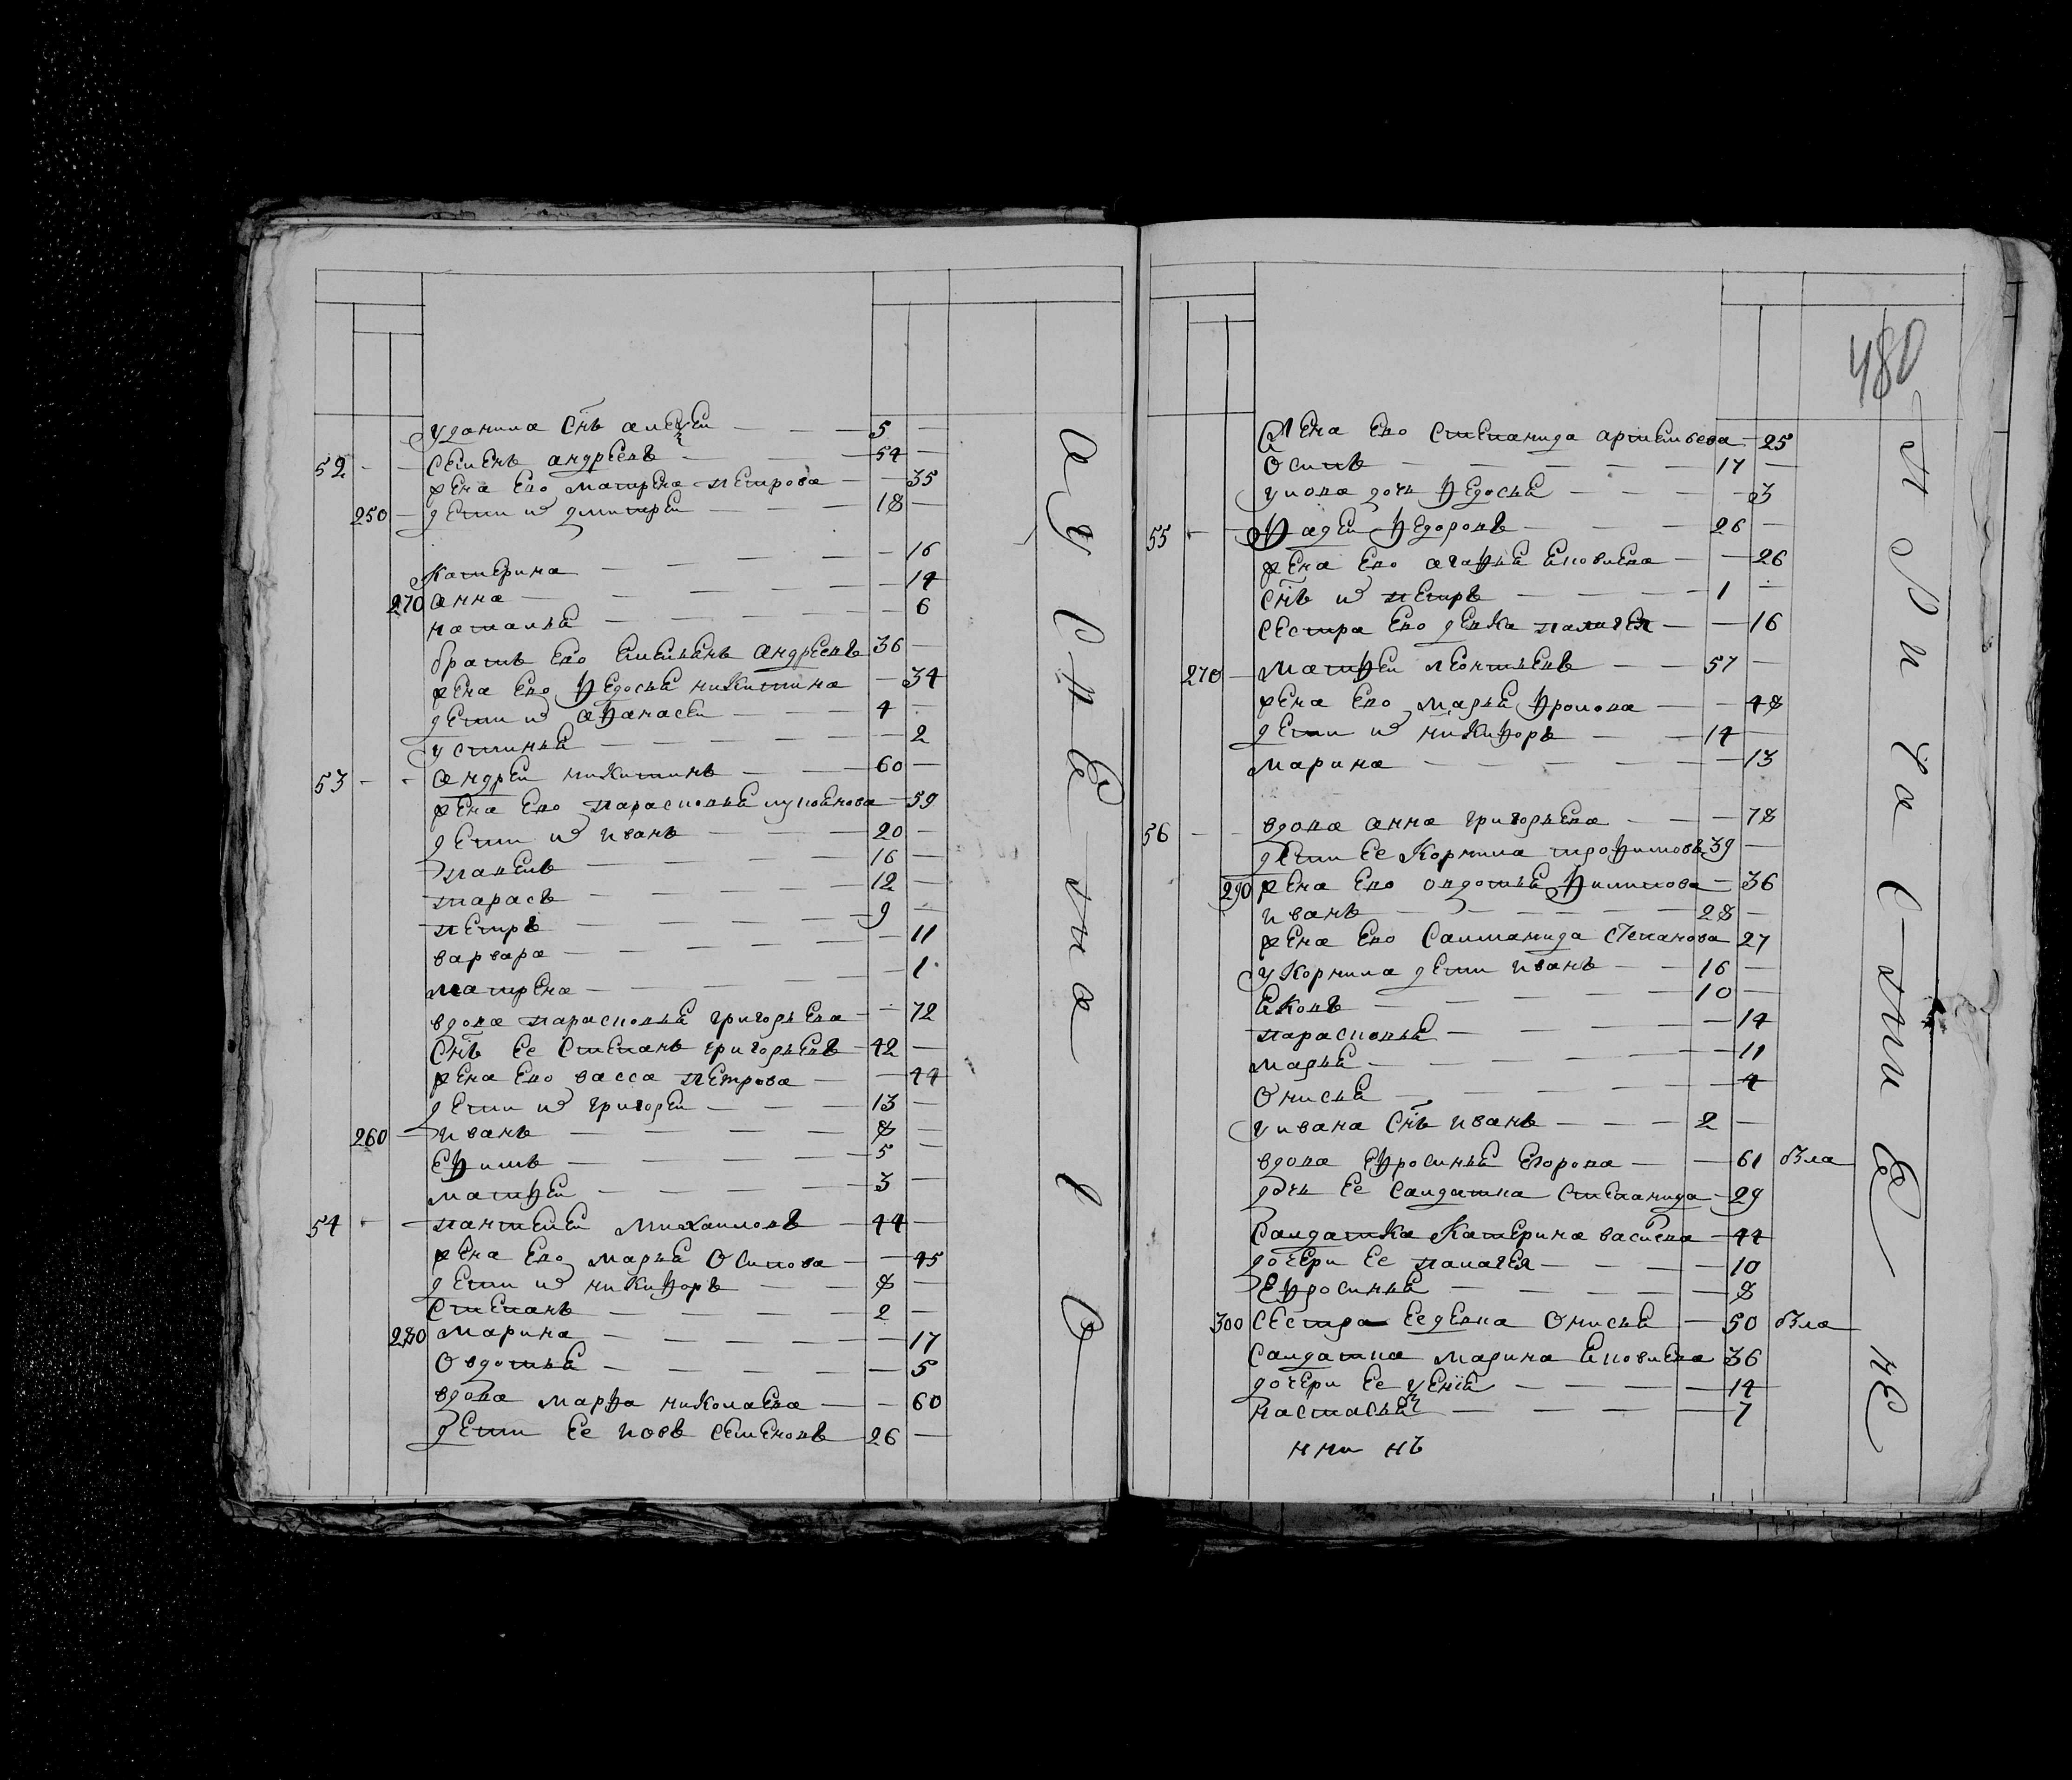 у данила снъ алеѯей — 5 —
52 — семенъ андреевъ — 54 —
жена ево матрена петрова — 35
250 — дети ихъ дмитрей — 18 —
катерина — 16
270 анна — 14
наталья — 6
братъ ево емельенъ андреевъ 36 —
жена ево федосья никитина — 34
дети ихъ афанасей — 4 —
устинья — 2
53 — андрей никитинъ — 60 —
жена ево парасковья — 59
дети ихъ иванъ — 20 —
павелъ — 16 —
тарасъ — 12 —
петръ — 9 —
варвара — 11
матрена — 1
вдова парасковья григорьева — 72
снъ ее степанъ григорьевъ — 42 —
жена ево васса петрова — 44
дети ихъ григорей — 13 —
260 — иванъ — 8 —
ефимъ — 5 —
матфей — 3 —
54 — пантелей михаиловъ — 44 —
жена ево марья осипова — 45
дети ихъ никифоръ — 8 —
степанъ — 2 —
280 марина — 17
овдотья — 5
вдова марфа николаева — 60
дети ее иовъ семеновъ 26 —
480
жена ево степанида артемьева — 25
осипъ — 17 —
у иова дочь федосья — 3
55 — фадей федоровъ — 26 —
жена ево агафья яковлева — 26
снъ ихъ петръ — 1 —
сестра ево девка палагея — 16
270 — матфей леонтьевъ — 57 —
жена ево марья фролова — 48
дети ихъ никифоръ — 14 —
марина — 13
56 — вдова анна григорьева — 78
дети ее корнила трофимовъ 39 —
290 жена ево овдотья филипова — 36
иванъ — 28 —
жена ево саламанида степанова 27
у корнила дети иванъ — 16 —
яковъ — 10 —
парасковья — 14
марья — 11
онисья — 4
у ивана снъ иванъ — 2 —
вдова ефросинья егорова — 61 бла
дочь ее салдатка степанида — 29
салдатка катерина васильева — 44
дочери ее палагея — 10
ефросинья — 8
300 сестра ее девка онисья — 50 бла
салдатка марина яковлева 36
дочери ее — 14
настасья — 7